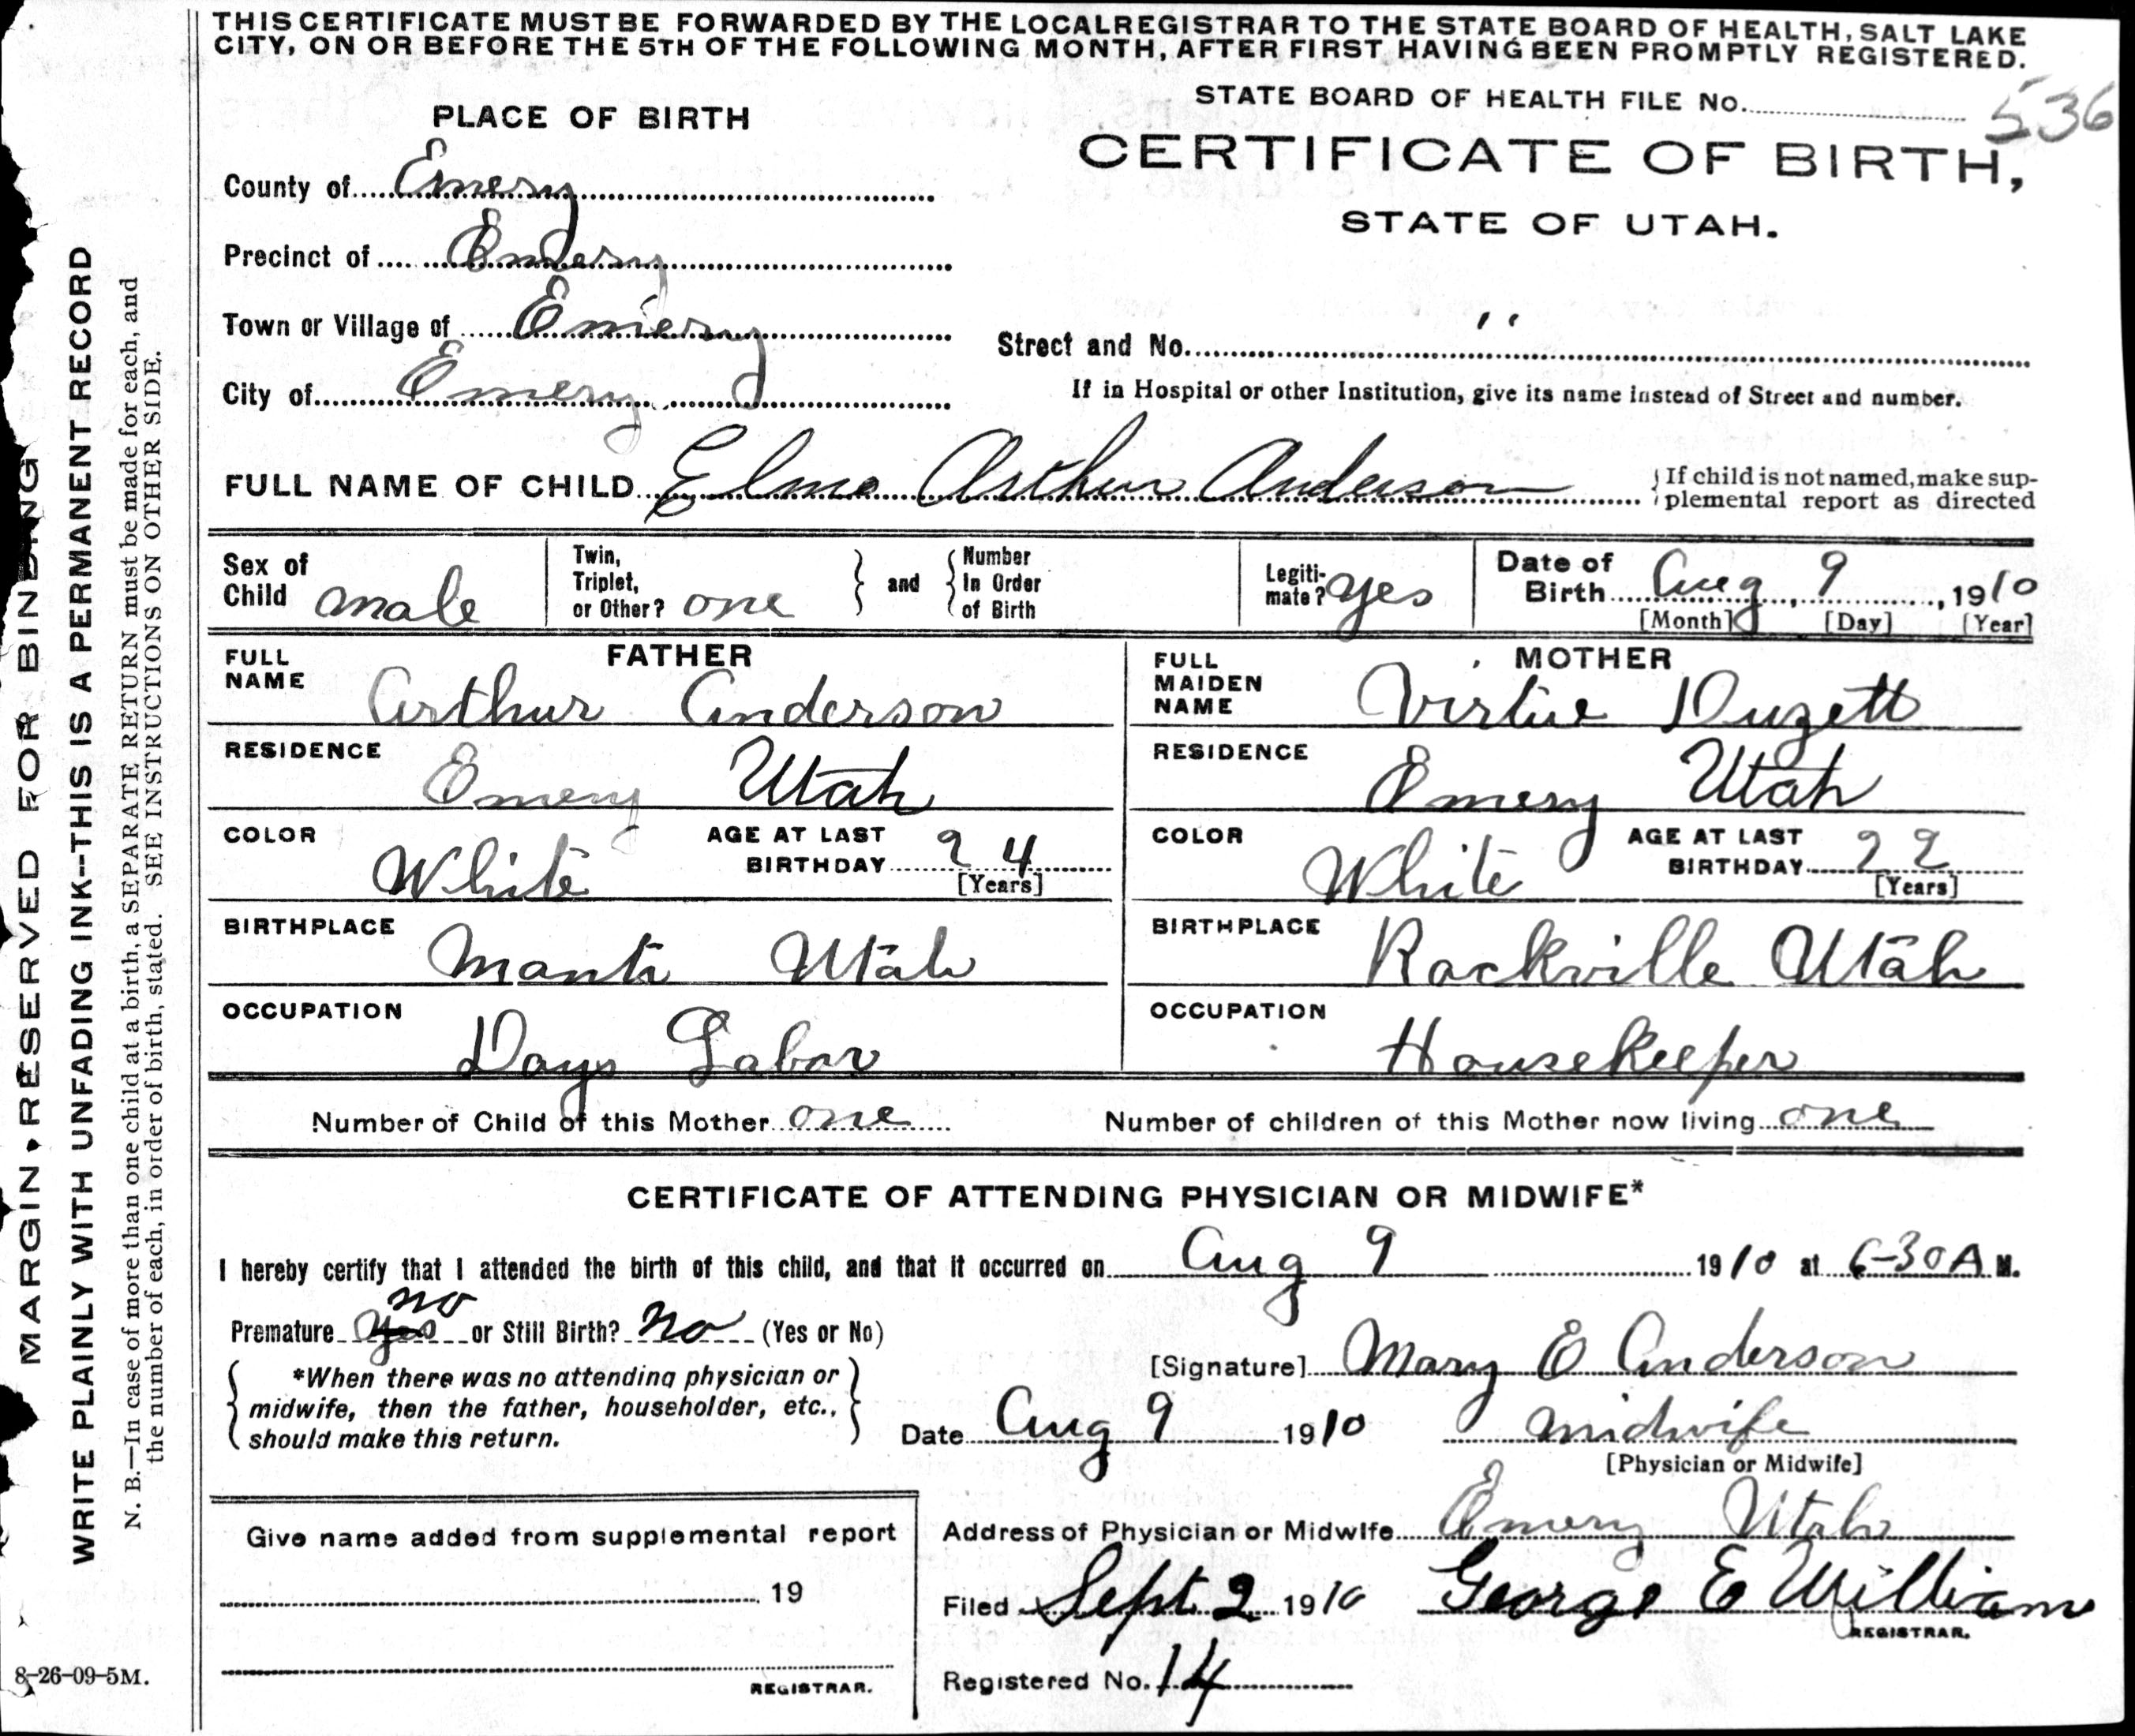 THIS CERTIFICATE MUST BE FORWARDED BY THE LOCAL REGISTRAR TO THE STATE BOARD OF HEALTH, SALT LAKE
CITY, ON OR BEFORE THE 5TH OF THE FOLLOWING MONTH, AFTER FIRST HAVING BEEN PROMPTLY REGISTERED.
STATE BOARD OF HEALTH FILE No. 536
PLACE OF BIRTH
CERTIFICATE OF BIRTH,
STATE OF UTAH.
County of Emery
Precinct of Emery
Town or Village of Emery
Street and No. ''
City of Emery
If in Hospital or other Institution, give its name instead of Street and number.
FULL NAME OF CHILD Elmo Arthur Anderson
If child is not named, make sup-
plemental report as directed
Sex of Child male
Twin, Triplet, or Other? one
and
Number In Order of Birth
Legiti-mate? yes
Date of Birth Aug 9, 1910
[Month] [Day] [Year]
FATHER
FULL NAME Arthur Anderson
RESIDENCE Emery Utah
COLOR White
AGE AT LAST BIRTHDAY 24
[Years]
BIRTHPLACE Manti Utah
OCCUPATION Days Labor
MOTHER
FULL MAIDEN NAME Virtue Duzett
RESIDENCE Emery Utah
COLOR White
AGE AT LAST BIRTHDAY 22
[Years]
BIRTHPLACE Rockville Utah
OCCUPATION Housekeeper
Number of Child of this Mother one
Number of children of this Mother now living one
CERTIFICATE OF ATTENDING PHYSICIAN OR MIDWIFE*
I hereby certify that I attended the birth of this child, and that it occurred on Aug 9 1910 at 6-30 A M.
no
Premature yes or Still Birth? no (Yes or No)
*When there was no attending physician or
midwife, then the father, householder, etc.,
should make this return.
[Signature] Mary E Anderson
Date Aug 9 1910
midwife
[Physician or Midwife]
Address of Physician or Midwife Emery Utah
Filed Sept 2 1910 George E William
REGISTRAR.
Registered No. 14
Give name added from supplemental report
19
REGISTRAR.
MARGIN RESERVED FOR BINDING
WRITE PLAINLY WITH UNFADING INK--THIS IS A PERMANENT RECORD
N. B.—In case of more than one child at a birth, a SEPARATE RETURN must be made for each, and
the number of each, in order of birth, stated. SEE INSTRUCTIONS ON OTHER SIDE.
8-26-09-5M.